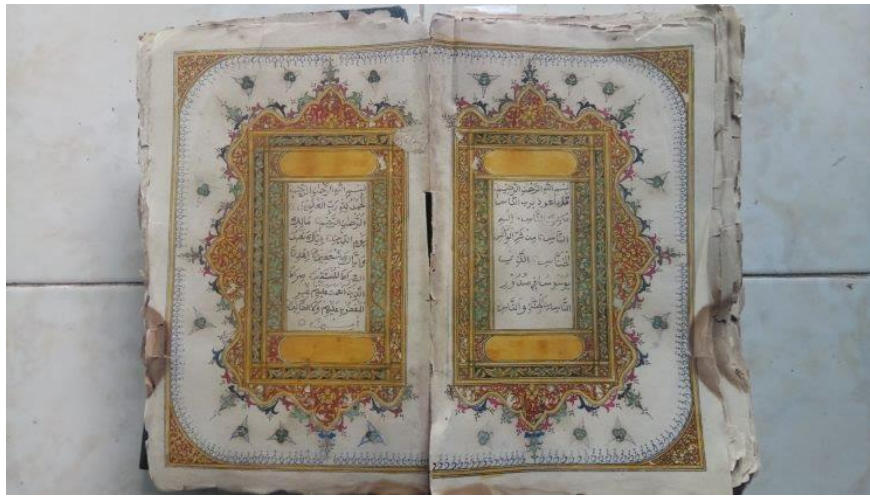 بسم الله الرحمن الرحيم
قل اعوذ برب الناس
ملك الناس اله
الناس من شر الوسواس
الخناس الذي
يوسوس في صدور
الناس من الجنة والناس
بسم الله الرحمن الرحيم
الحمد لله رب العلمين
الرحمن الرحيم مالك
يوم الدين اياك نعبد
واياك نستعين اهدنا
الصراط المستقيم صراط
الذين انعمت عليهم غير
المغضوب عليهم ولا الضالين
امين